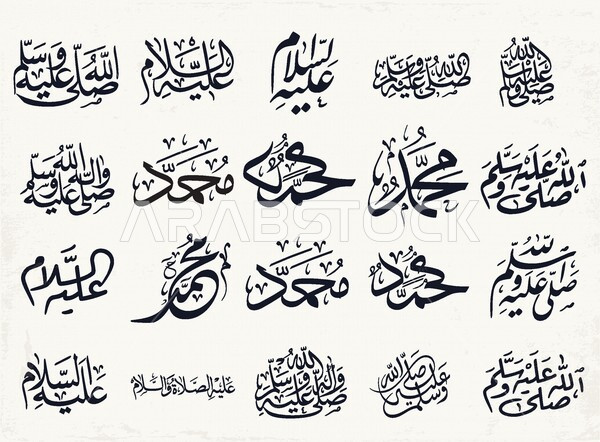 صلى الله عليه وسلم
عليه السلام
عليه السلام
صلى الله عليه وسلم
صلى الله عليه وسلم
صلى الله عليه وآله وسلم
محمد
محمد
محمد
صلى الله عليه وسلم
عليه السلام
محمد
محمد
محمد
صلى الله عليه وسلم
عليه السلام
عليه الصلاة والسلام
صلى الله عليه وآله وسلم
صلى الله عليه وسلم
صلى الله عليه وسلم
ARABSTOCK